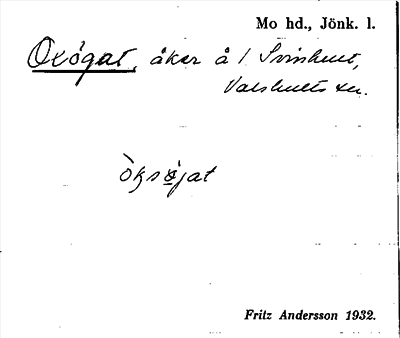 Mo hd., Jönk. l.
Oxögat, åker å 1 Svinhult,
Valshults sn.
òksø̀jat
Fritz Andersson 1932.